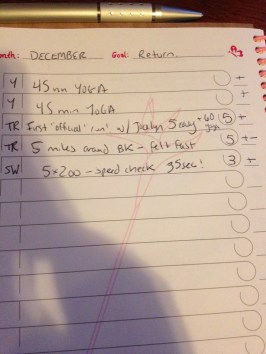 Month: DECEMBER Goal: Return.
Y 45 mn YOGA +
Y 45 mn YOGA +
TR First "official" run! w/ Jocelyn 5 easy +60 5 +
TR 5 miles around BK - felt fast 5 +-
SW 5x200 - speed check 35sec! 3 +